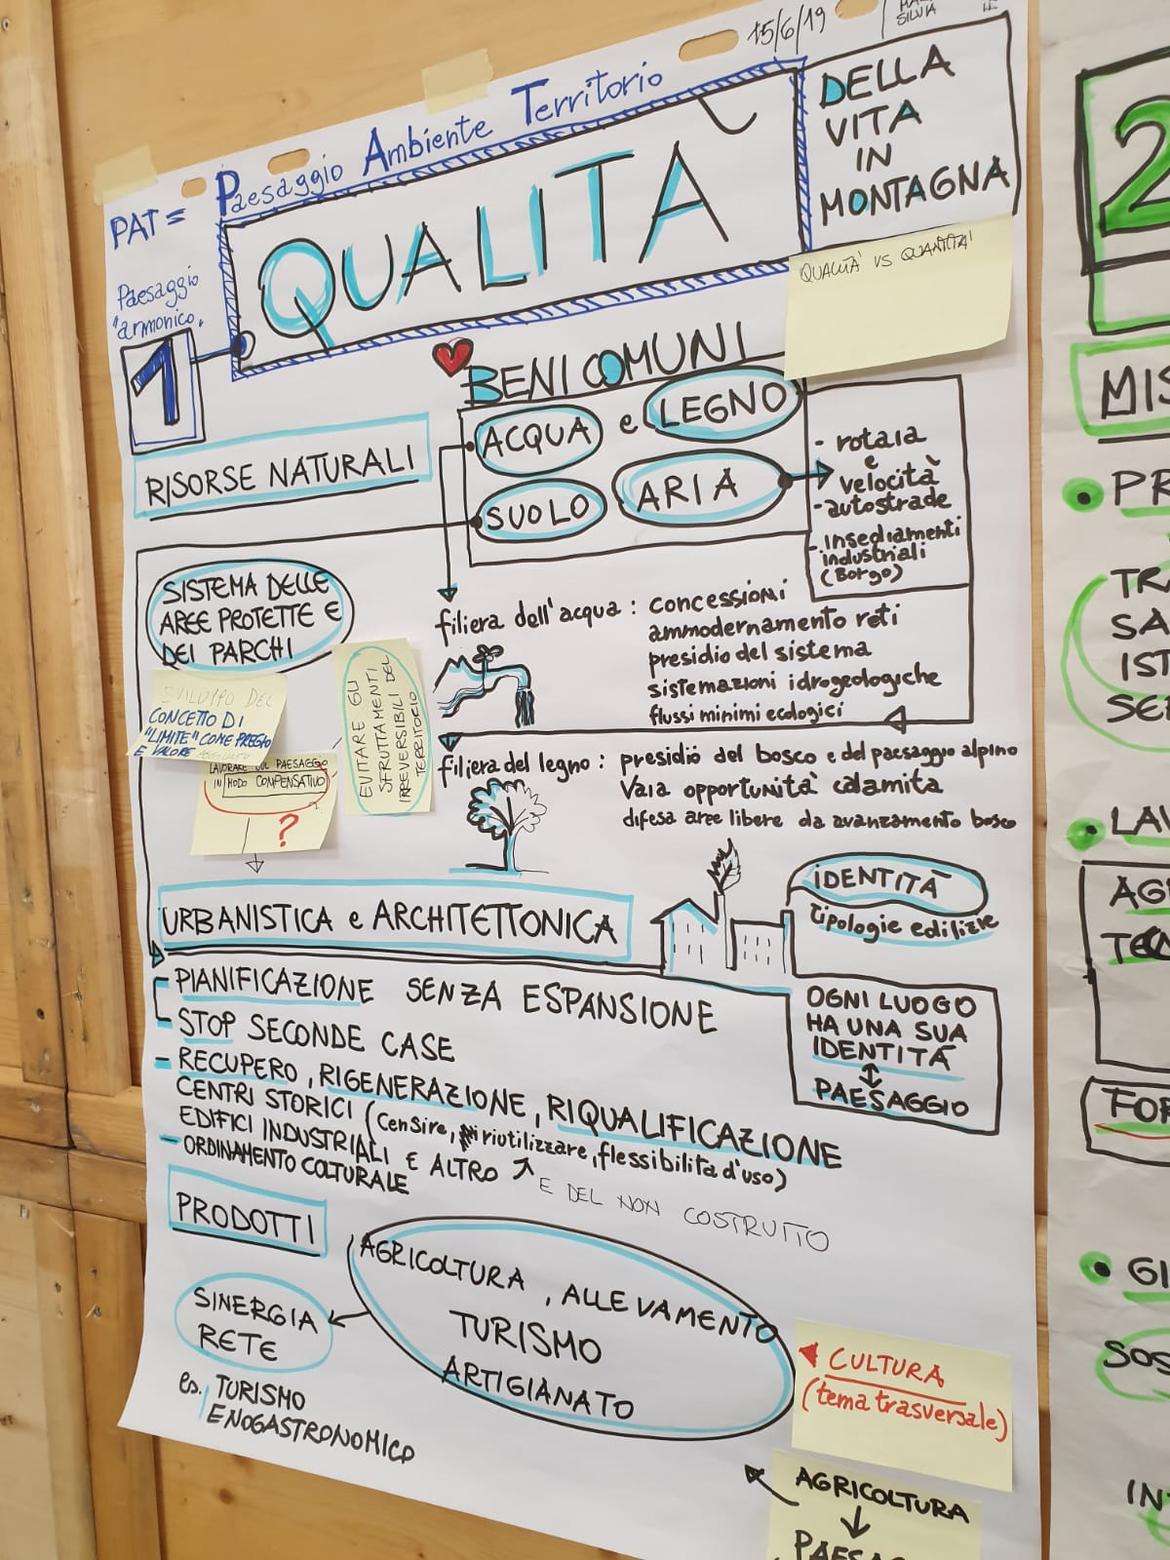 15/6/19
SILVIA
PAT = Paesaggio Ambiente Territorio
QUALITÀ
DELLA
VITA
IN
MONTAGNA
QUALITÀ VS QUANTITÀ
Paesaggio
"armonico"
1
BENI COMUNI
RISORSE NATURALI
ACQUA e LEGNO
SUOLO ARIA
- rotaia
e
velocità
- autostrade
- insediamenti
industriali
(Borgo)
SISTEMA DELLE
AREE PROTETTE E
DEI PARCHI
filiera dell'acqua : concessioni
ammodernamento reti
presidio del sistema
sistemazioni idrogeologiche
flussi minimi ecologici
SVILUPPO DEL
CONCETTO DI
"LIMITE" COME PREGIO
E VALORE AGGIUNTO
EVITARE GLI
SFRUTTAMENTI
IRREVERSIBILI DEL
TERRITORIO
LAVORARE SUL PAESAGGIO
IN MODO COMPENSATIVO
?
filiera del legno : presidio del bosco e del paesaggio alpino
Vaia opportunità calamita
difesa aree libere da avanzamento bosco
URBANISTICA e ARCHITETTONICA
IDENTITÀ
tipologie edilizie
OGNI LUOGO
HA UNA SUA
IDENTITÀ
↕
PAESAGGIO
- PIANIFICAZIONE SENZA ESPANSIONE
- STOP SECONDE CASE
- RECUPERO, RIGENERAZIONE, RIQUALIFICAZIONE
CENTRI STORICI (censire, riutilizzare, flessibilità d'uso)
EDIFICI INDUSTRIALI E ALTRO
E DEL NON COSTRUITO
- ORDINAMENTO COLTURALE
PRODOTTI
AGRICOLTURA, ALLEVAMENTO
TURISMO
ARTIGIANATO
SINERGIA
RETE
es. TURISMO
ENOGASTRONOMICO
CULTURA
(tema trasversale)
AGRICOLTURA
↓
2
MIS
PR
TR
SA
IST
SER
LAV
AGR
TECN
FOR
GI
SOS
IN